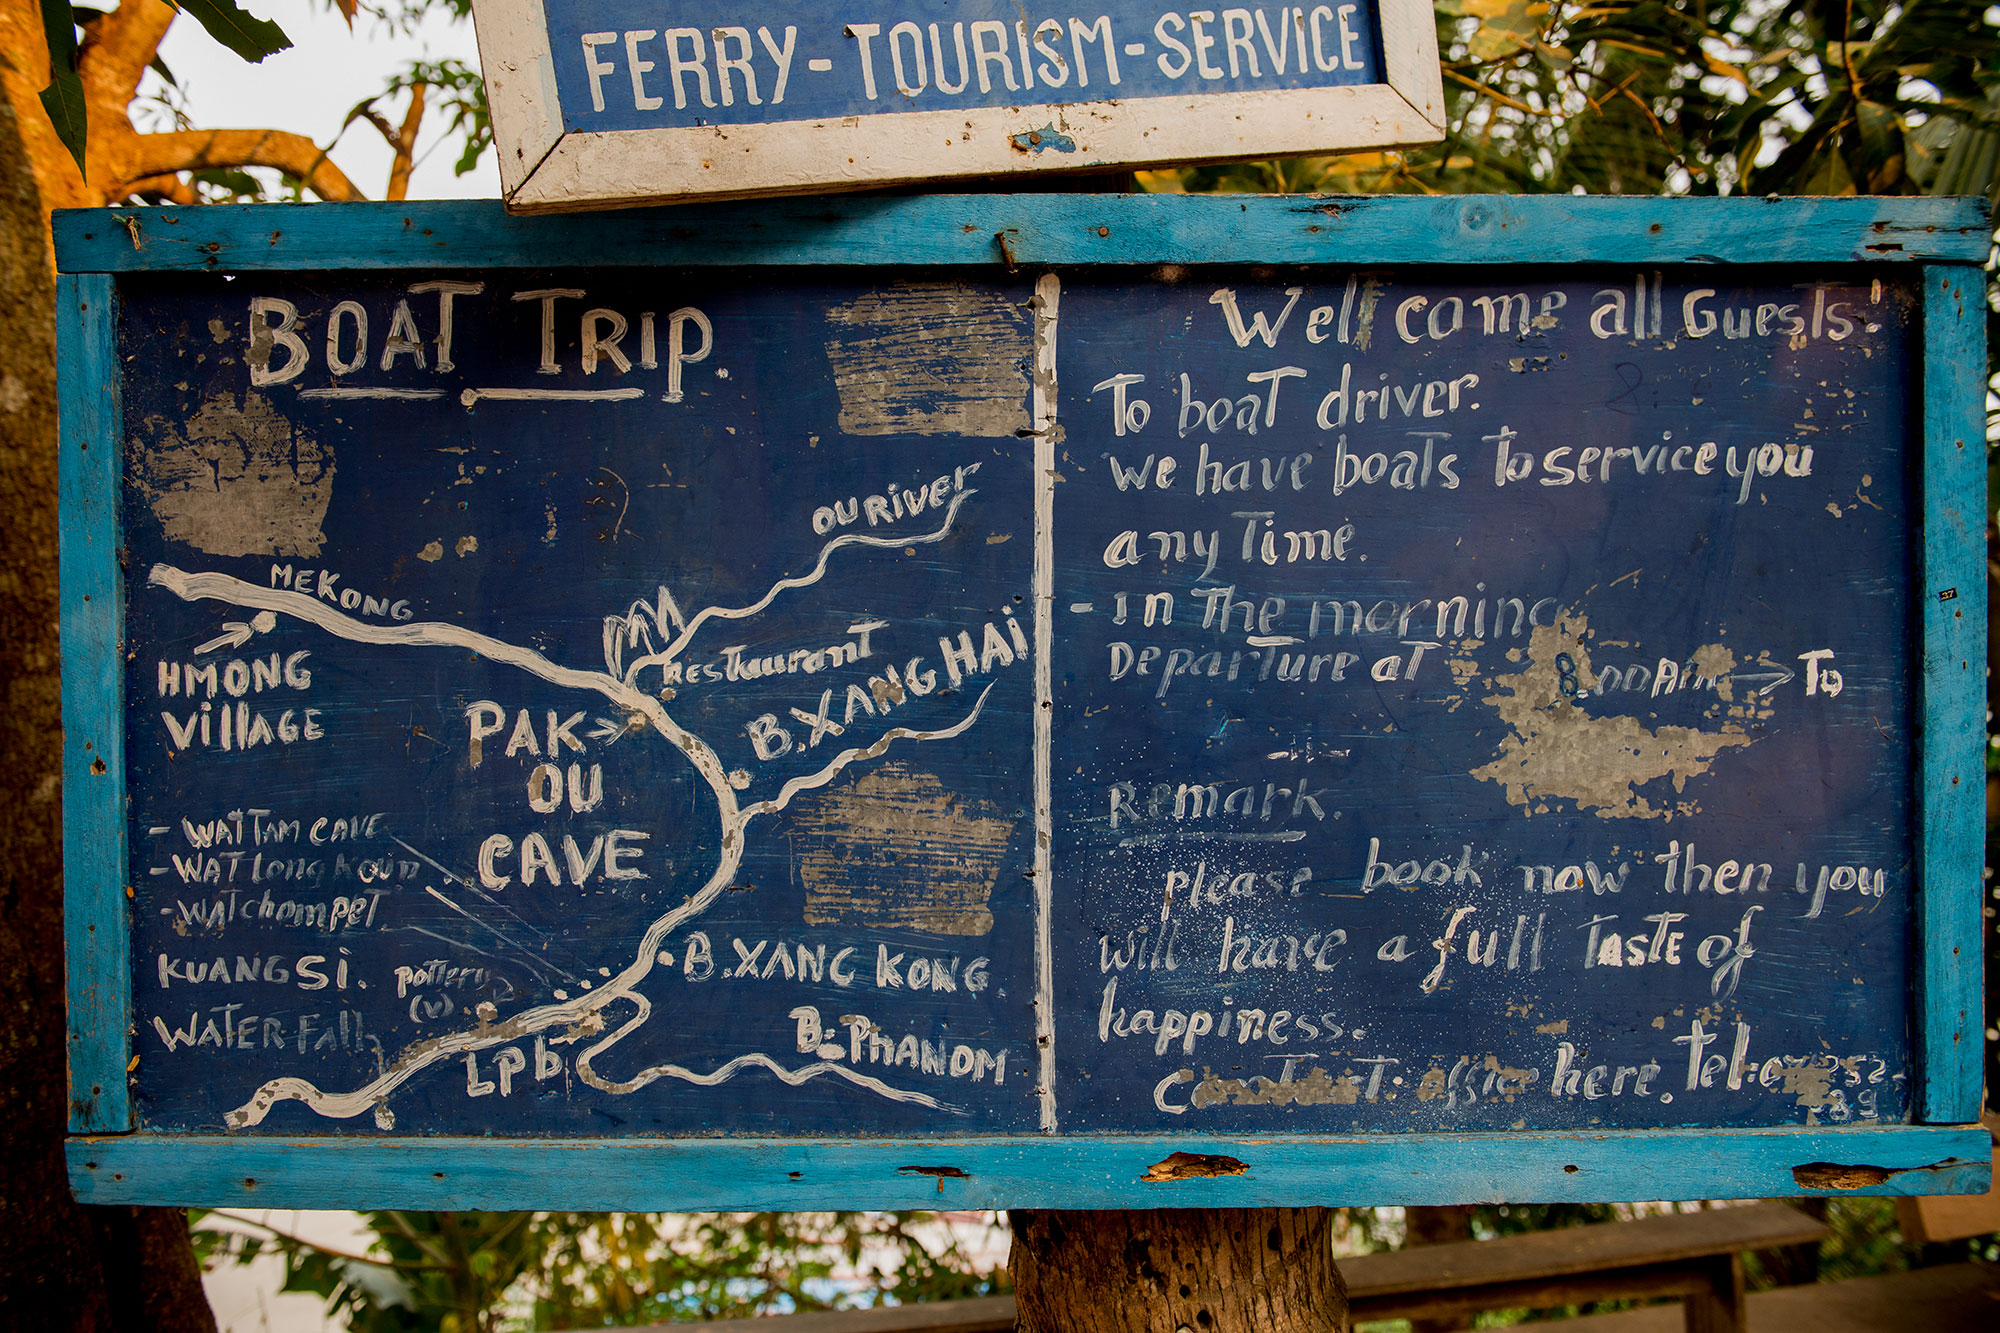 FERRY-TOURISM-SERVICE
BOAT TRIP
OU RIVER
MEKONG
HMONG
VillAGE
RESTaurant
B.XANG HAI
PAK
OU
CAVE
- WAT TAM CAVE
- WAT Long Koun
- WAT chompET.
KUANG Si.
WATER-Fall
pottery
(v)
B.XANG KONG
LPb
B-PHANOM
Well come all Guests!
To boat driver.
we have boats to service you
any Time.
- In The morning
Departure at 8.00Am → To
-11-
Remark.
please book now then you
will have a full taste of
happiness.
Contact. office here. Tel:
-89